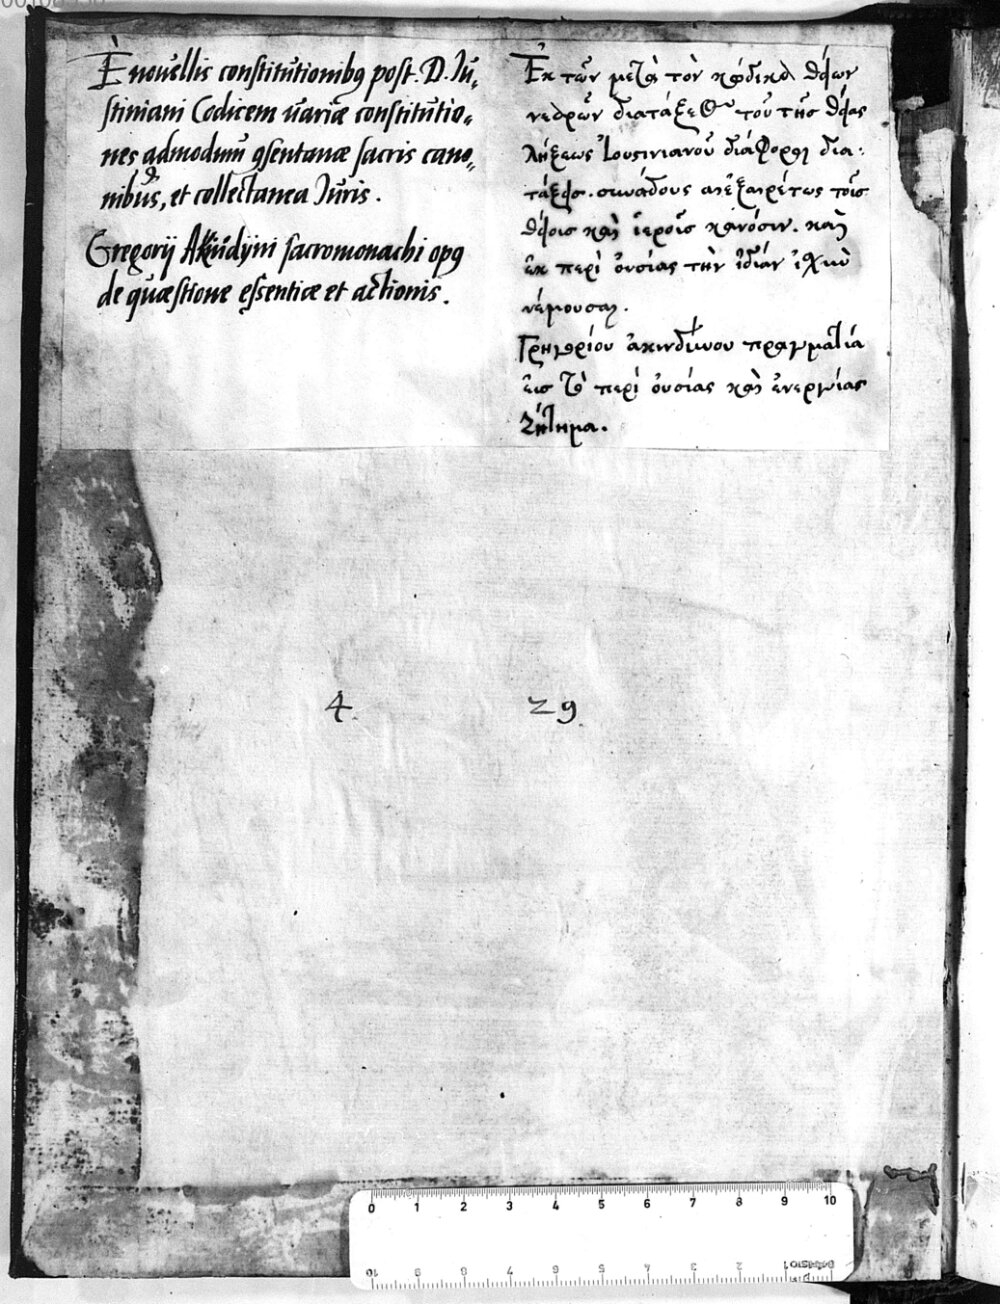 È nouellis constitutionibꝯ post. D. Iu„
stiniani Codicem uariæ constitutio„
nes admodum ꝯsentanæ sacris cano„
nibus, et collectanea Iuris.
Gregorij Akindÿni sacromonachi opꝯ
de quæstione essentiæ et actionis.
Ἐκ τῶν μετὰ τὸν κώδικα θείων
νεαρῶν διατάξεων τοῦ τῆσ θείας
λήξεως Ἰουστινιανοῦ διάφοροι δια:
τάξεισ. συνάδους ἀνεξαιρέτως τοῖσ
θείοις καὶ ἱεροῖς κανόσιν. καὶ
ἐκ περὶ ὀυσίας τὴν ἰδίαν ἰχὺν
νέμουσαι.
Γρηγορίου ἀκινδύνου πραγματία
ἐισ τὸ περὶ ὀυσίας καὶ ἐνεργείας
ζήτημα.
4. 29
0 1 2 3 4 5 6 7 8 9 10